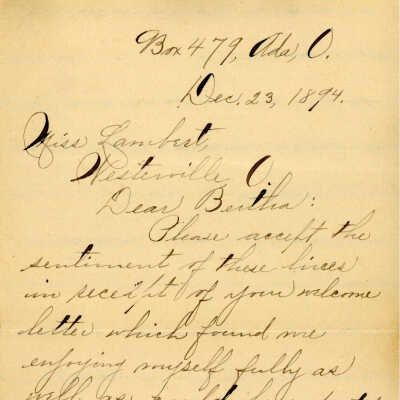 Box 479, Ada, O.
Dec. 23, 1894.
Miss Lambert,
Westerville, O.
Dear Bertha:
Please accept the
sentiment of these lines
in receipt of your welcome
letter which found me
enjoying myself fully as
well as could be